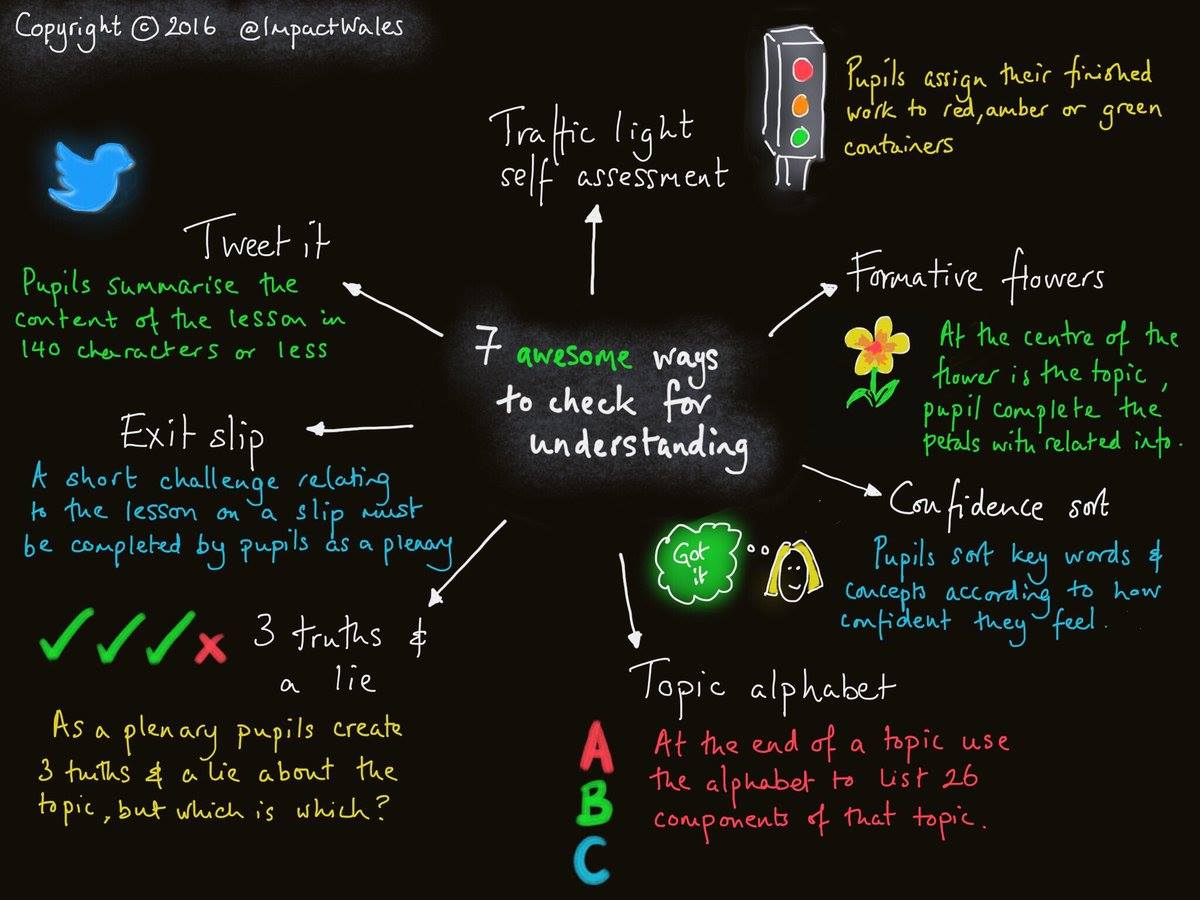 Copyright © 2016 @ImpactWales
Traffic light
self assessment
Pupils assign their finished
work to red, amber or green
containers
Tweet it
Pupils summarise the
content of the lesson in
140 characters or less
Formative flowers
At the centre of the
flower is the topic,
pupil complete the
petals with related info.
7 awesome ways
to check for
understanding
Exit slip
A short challenge relating
to the lesson on a slip must
be completed by pupils as a plenary
Confidence sort
Pupils sort key words &
concepts according to how
confident they feel.
Got
it
3 truths &
a lie
As a plenary pupils create
3 truths & a lie about the
topic, but which is which?
Topic alphabet
A
B
C
At the end of a topic use
the alphabet to list 26
components of that topic.